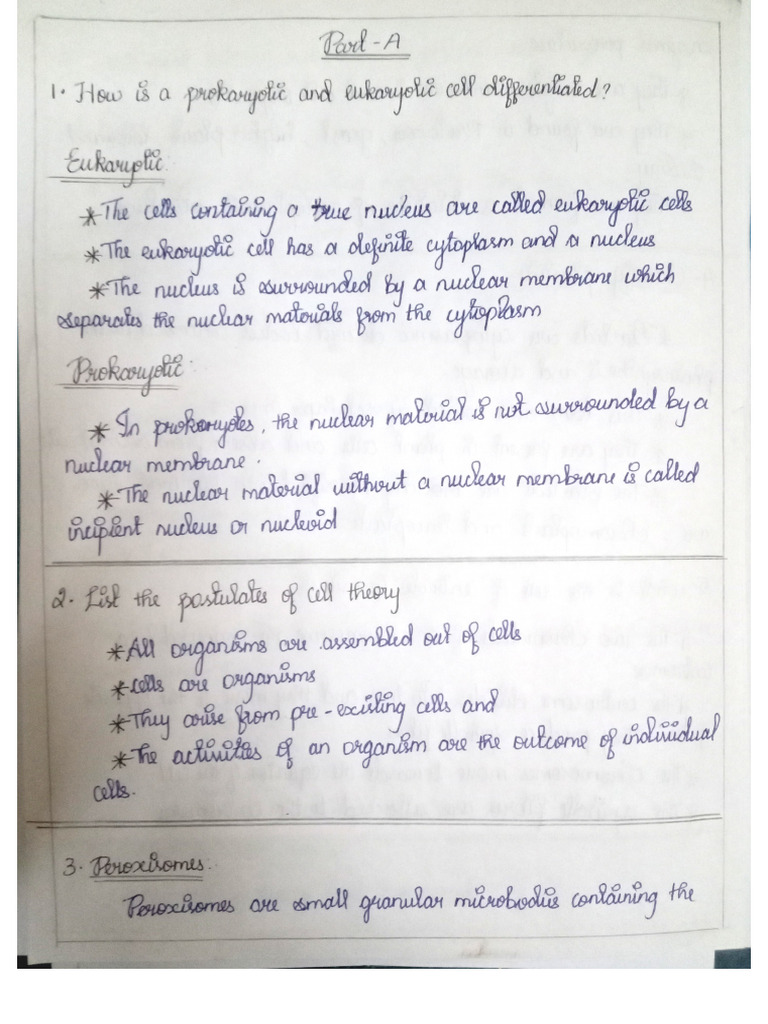 Part - A
1. How is a prokaryotic and eukaryotic cell differentiated?
Eukaryotic:
* The cells containing a true nucleus are called eukaryotic cells
* The eukaryotic cell has a definite cytoplasm and a nucleus
* The nucleus is surrounded by a nuclear membrane which
separates the nuclear materials from the cytoplasm
Prokaryotic:
* In prokaryotes, the nuclear material is not surrounded by a
nuclear membrane.
* The nuclear material without a nuclear membrane is called
incipient nucleus or nucleoid
2. List the postulates of cell theory
* All organisms are assembled out of cells
* Cells are organisms
* They arise from pre-existing cells and
* The activities of an organism are the outcome of individual
cells.
3. Peroxisomes:
Peroxisomes are small granular microbodies containing the